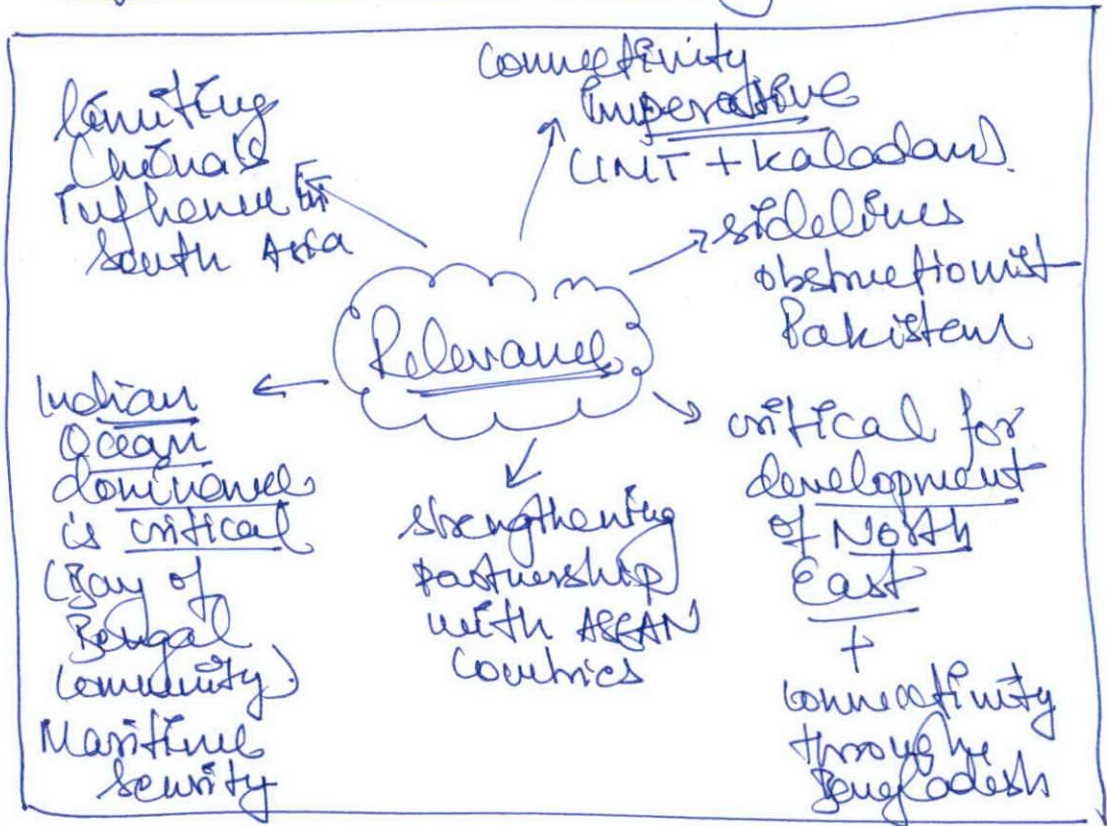 limiting
China's
Influence in
South Asia
connectivity
imperative
(IMT + Kaladan)
sidelines
obstructionist
Pakistan
Relevance
Indian
Ocean
dominance
is critical
(Bay of
Bengal
Community)
Maritime
security
strengthening
partnership
with ASEAN
Countries
critical for
development
of North
East
+
connectivity
through
Bangladesh